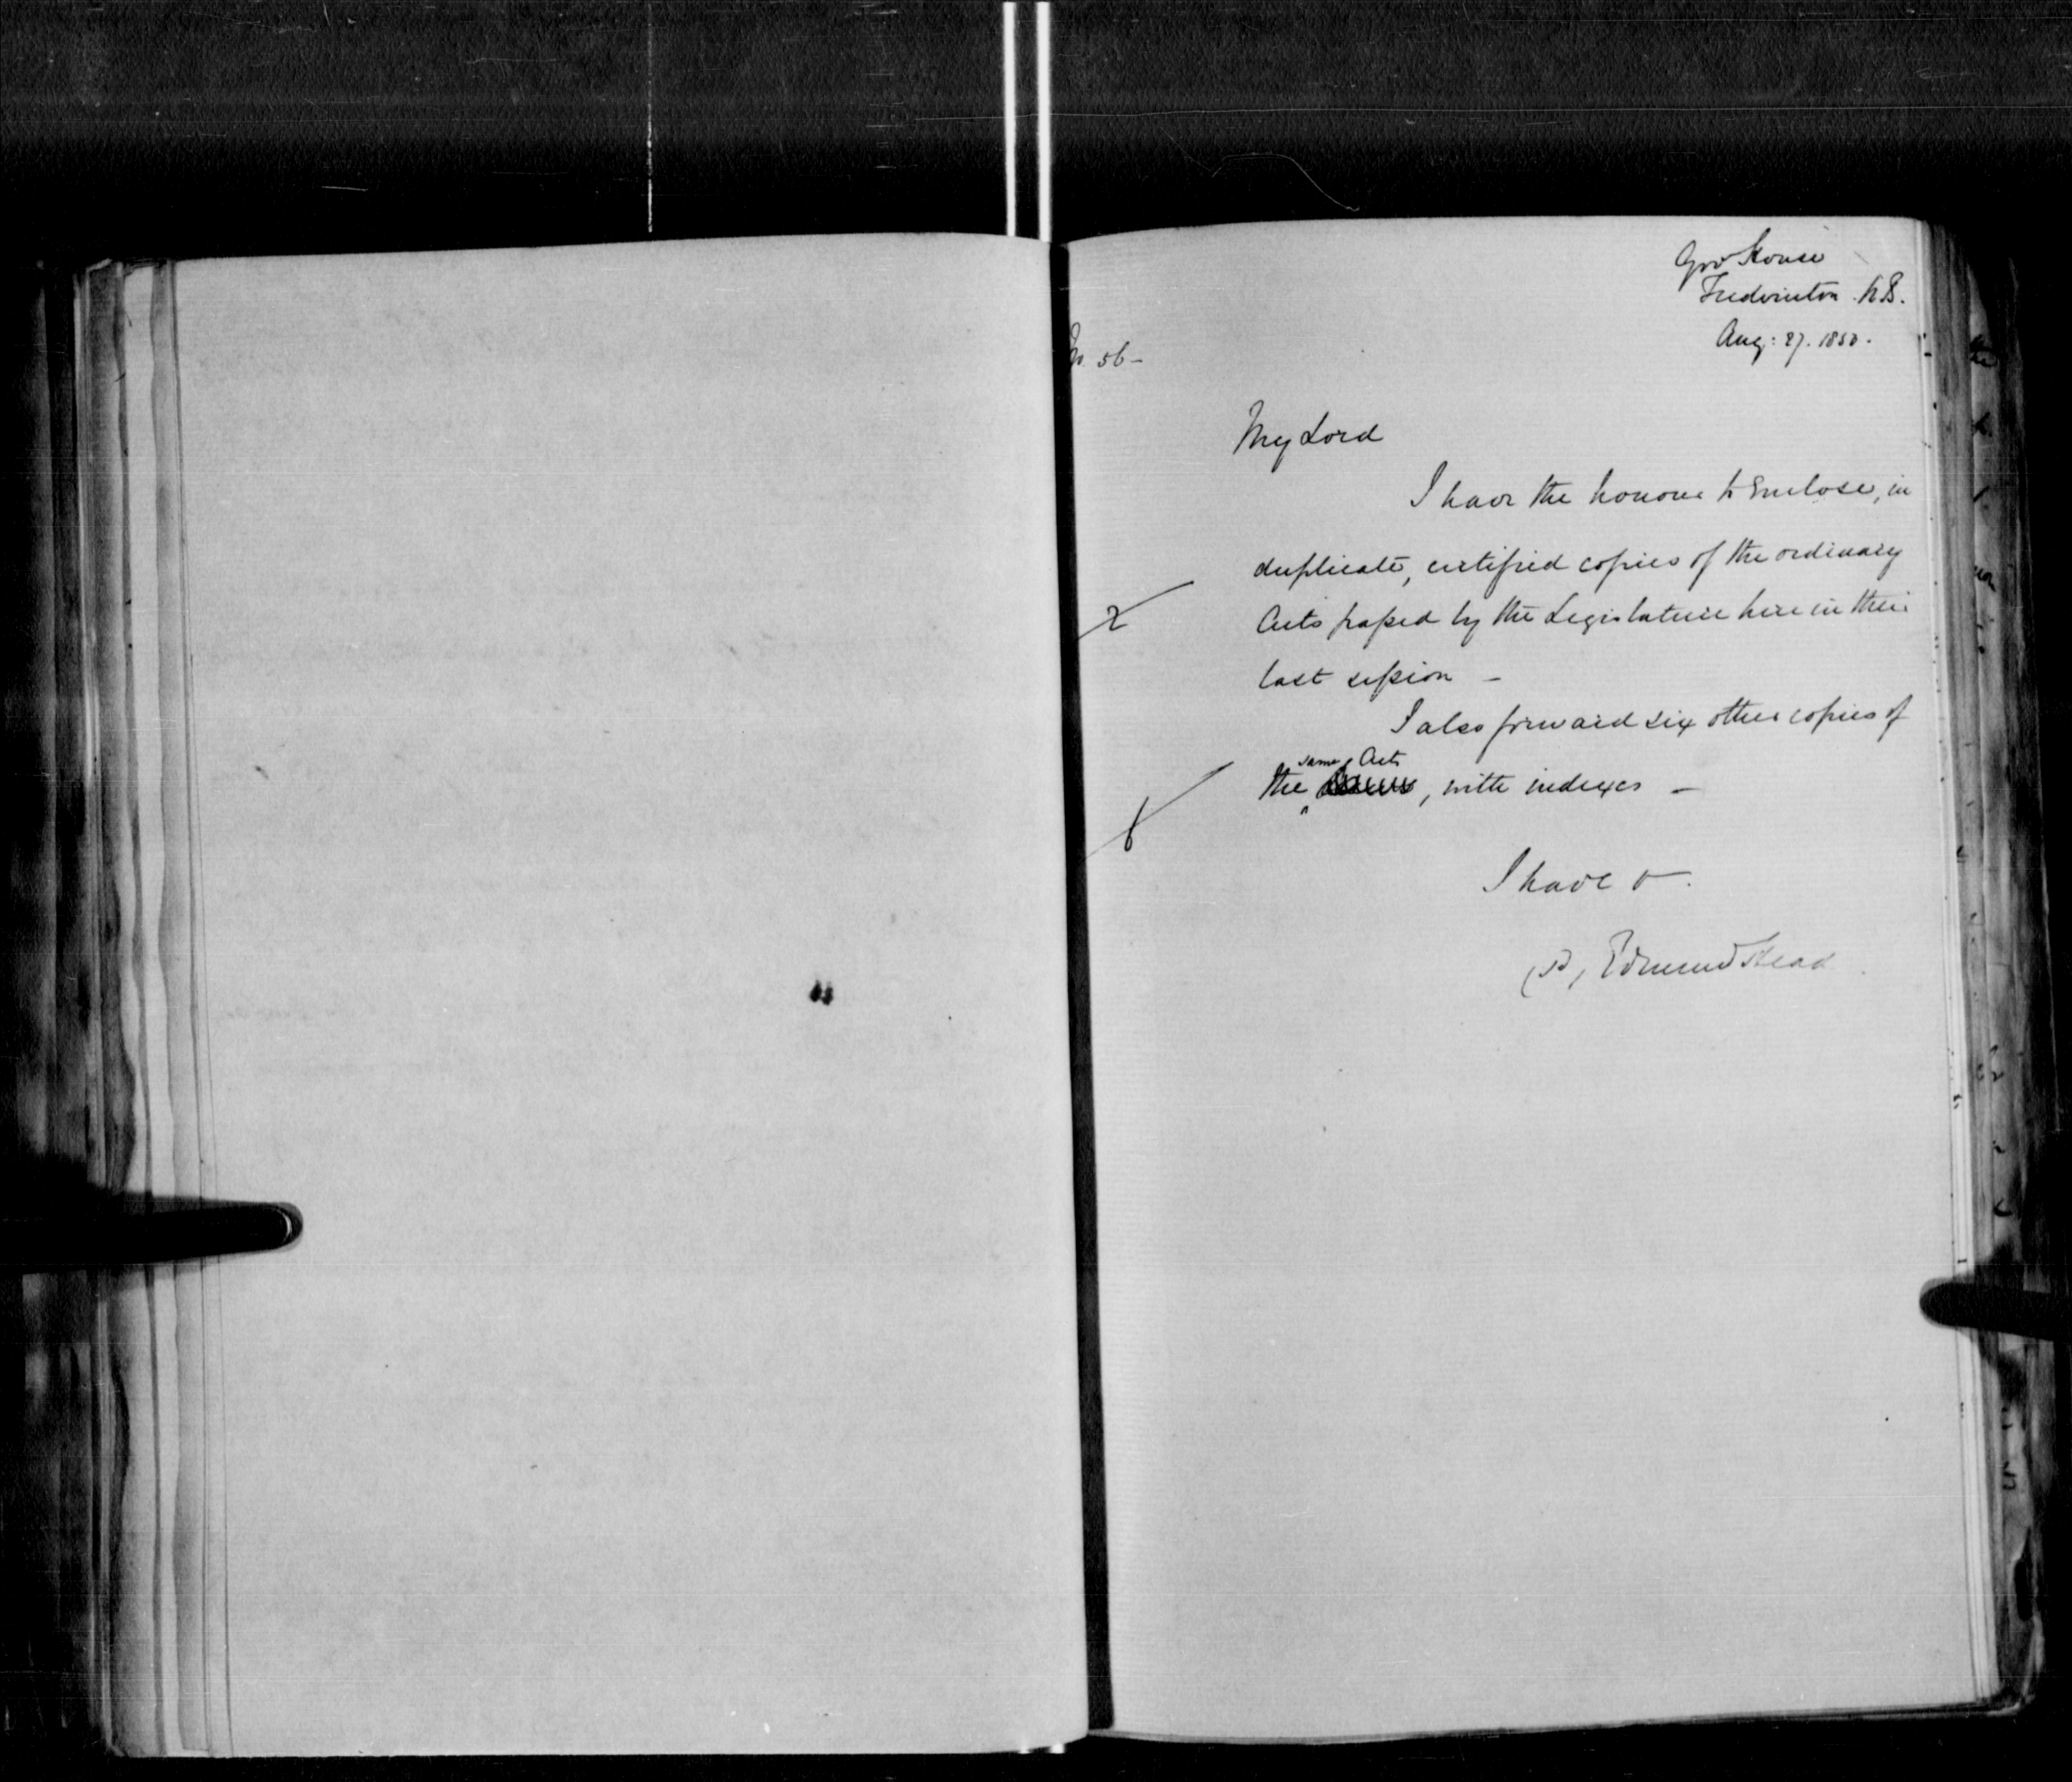 Gov House
Fredericton N.B.
Aug: 27. 1850.
No. 56 –
My Lord
I have the honour to enclose, in
duplicate, certified copies of the ordinary
2
Acts passed by the Legislature here in their
last session –
I also forward six other copies of
same Acts
the , with indexes –
6
I have &c.
(Sd) Edmund Head